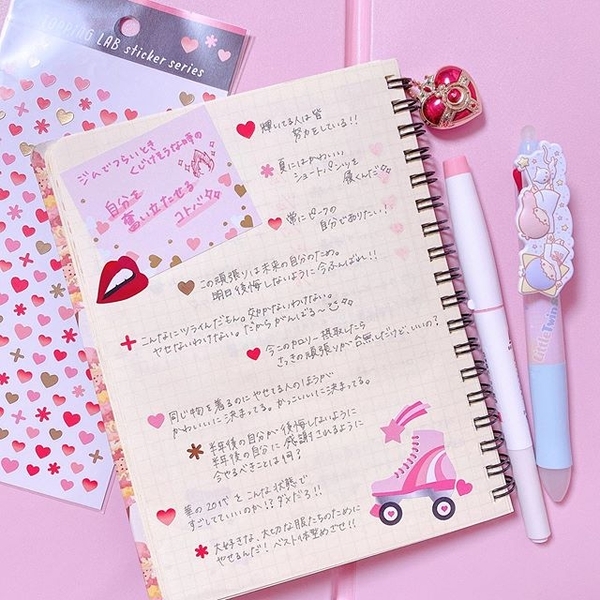 LOPPING LAB sticker series
しんでつらいとき
くじけそうな時の
自分を
奮い立たせる
コトバ
輝いてる人は皆
努力をしている!!
夏にはかわいい
ショートパンツを
履くんだ
常にピークの
自分でありたい!
この頑張りは未来の自分のため。
明日後悔しないように今ふんばれ!!
こんなにツライんだもん。効かないわけない。
やせないわけない。だからがんばろ〜
今このカロリー摂取したら
さっきの頑張りが台無しだけど、いいの?
同じ物を着るのにやせてる人のほうが
かわいいに決まってる。かっこいいに決まってる。
半年後の自分が後悔しないように
半年後の自分に感謝されるように
今やるべきことは何?
華の20代をこんな状態で
すごしていいのか!?ダメだろ!!
大好きな、大切な服たちのために
やせるんだ!ベスト体型めざせ!!
LittleTwin